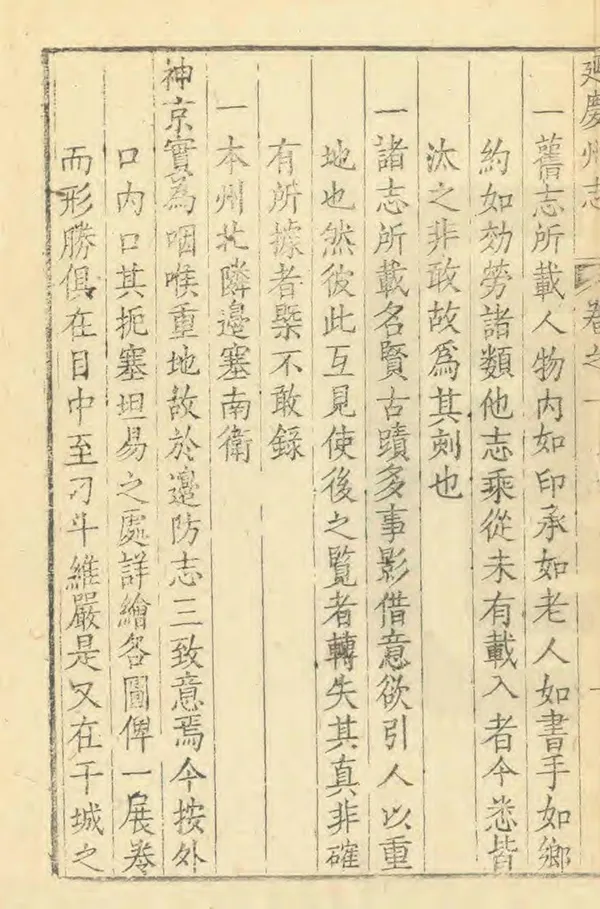 延慶州志 卷之一
一舊志所載人物内如印承如老人如書手如鄉
約如効勞諸類他志乘從未有載入者今悉皆
汰之非敢故爲其刻也
一諸志所載名賢古蹟多事影借意欲引人以重
地也然彼此互見使後之覽者轉失其真非確
有所據者槩不敢錄
一本州北隣邉塞南衛
神京實爲咽喉重地故於邉防志三致意焉今按外
口内口其扼塞坦易之處詳繪各圖俾一展卷
而形勝俱在目中至刁斗維嚴是又在干城之